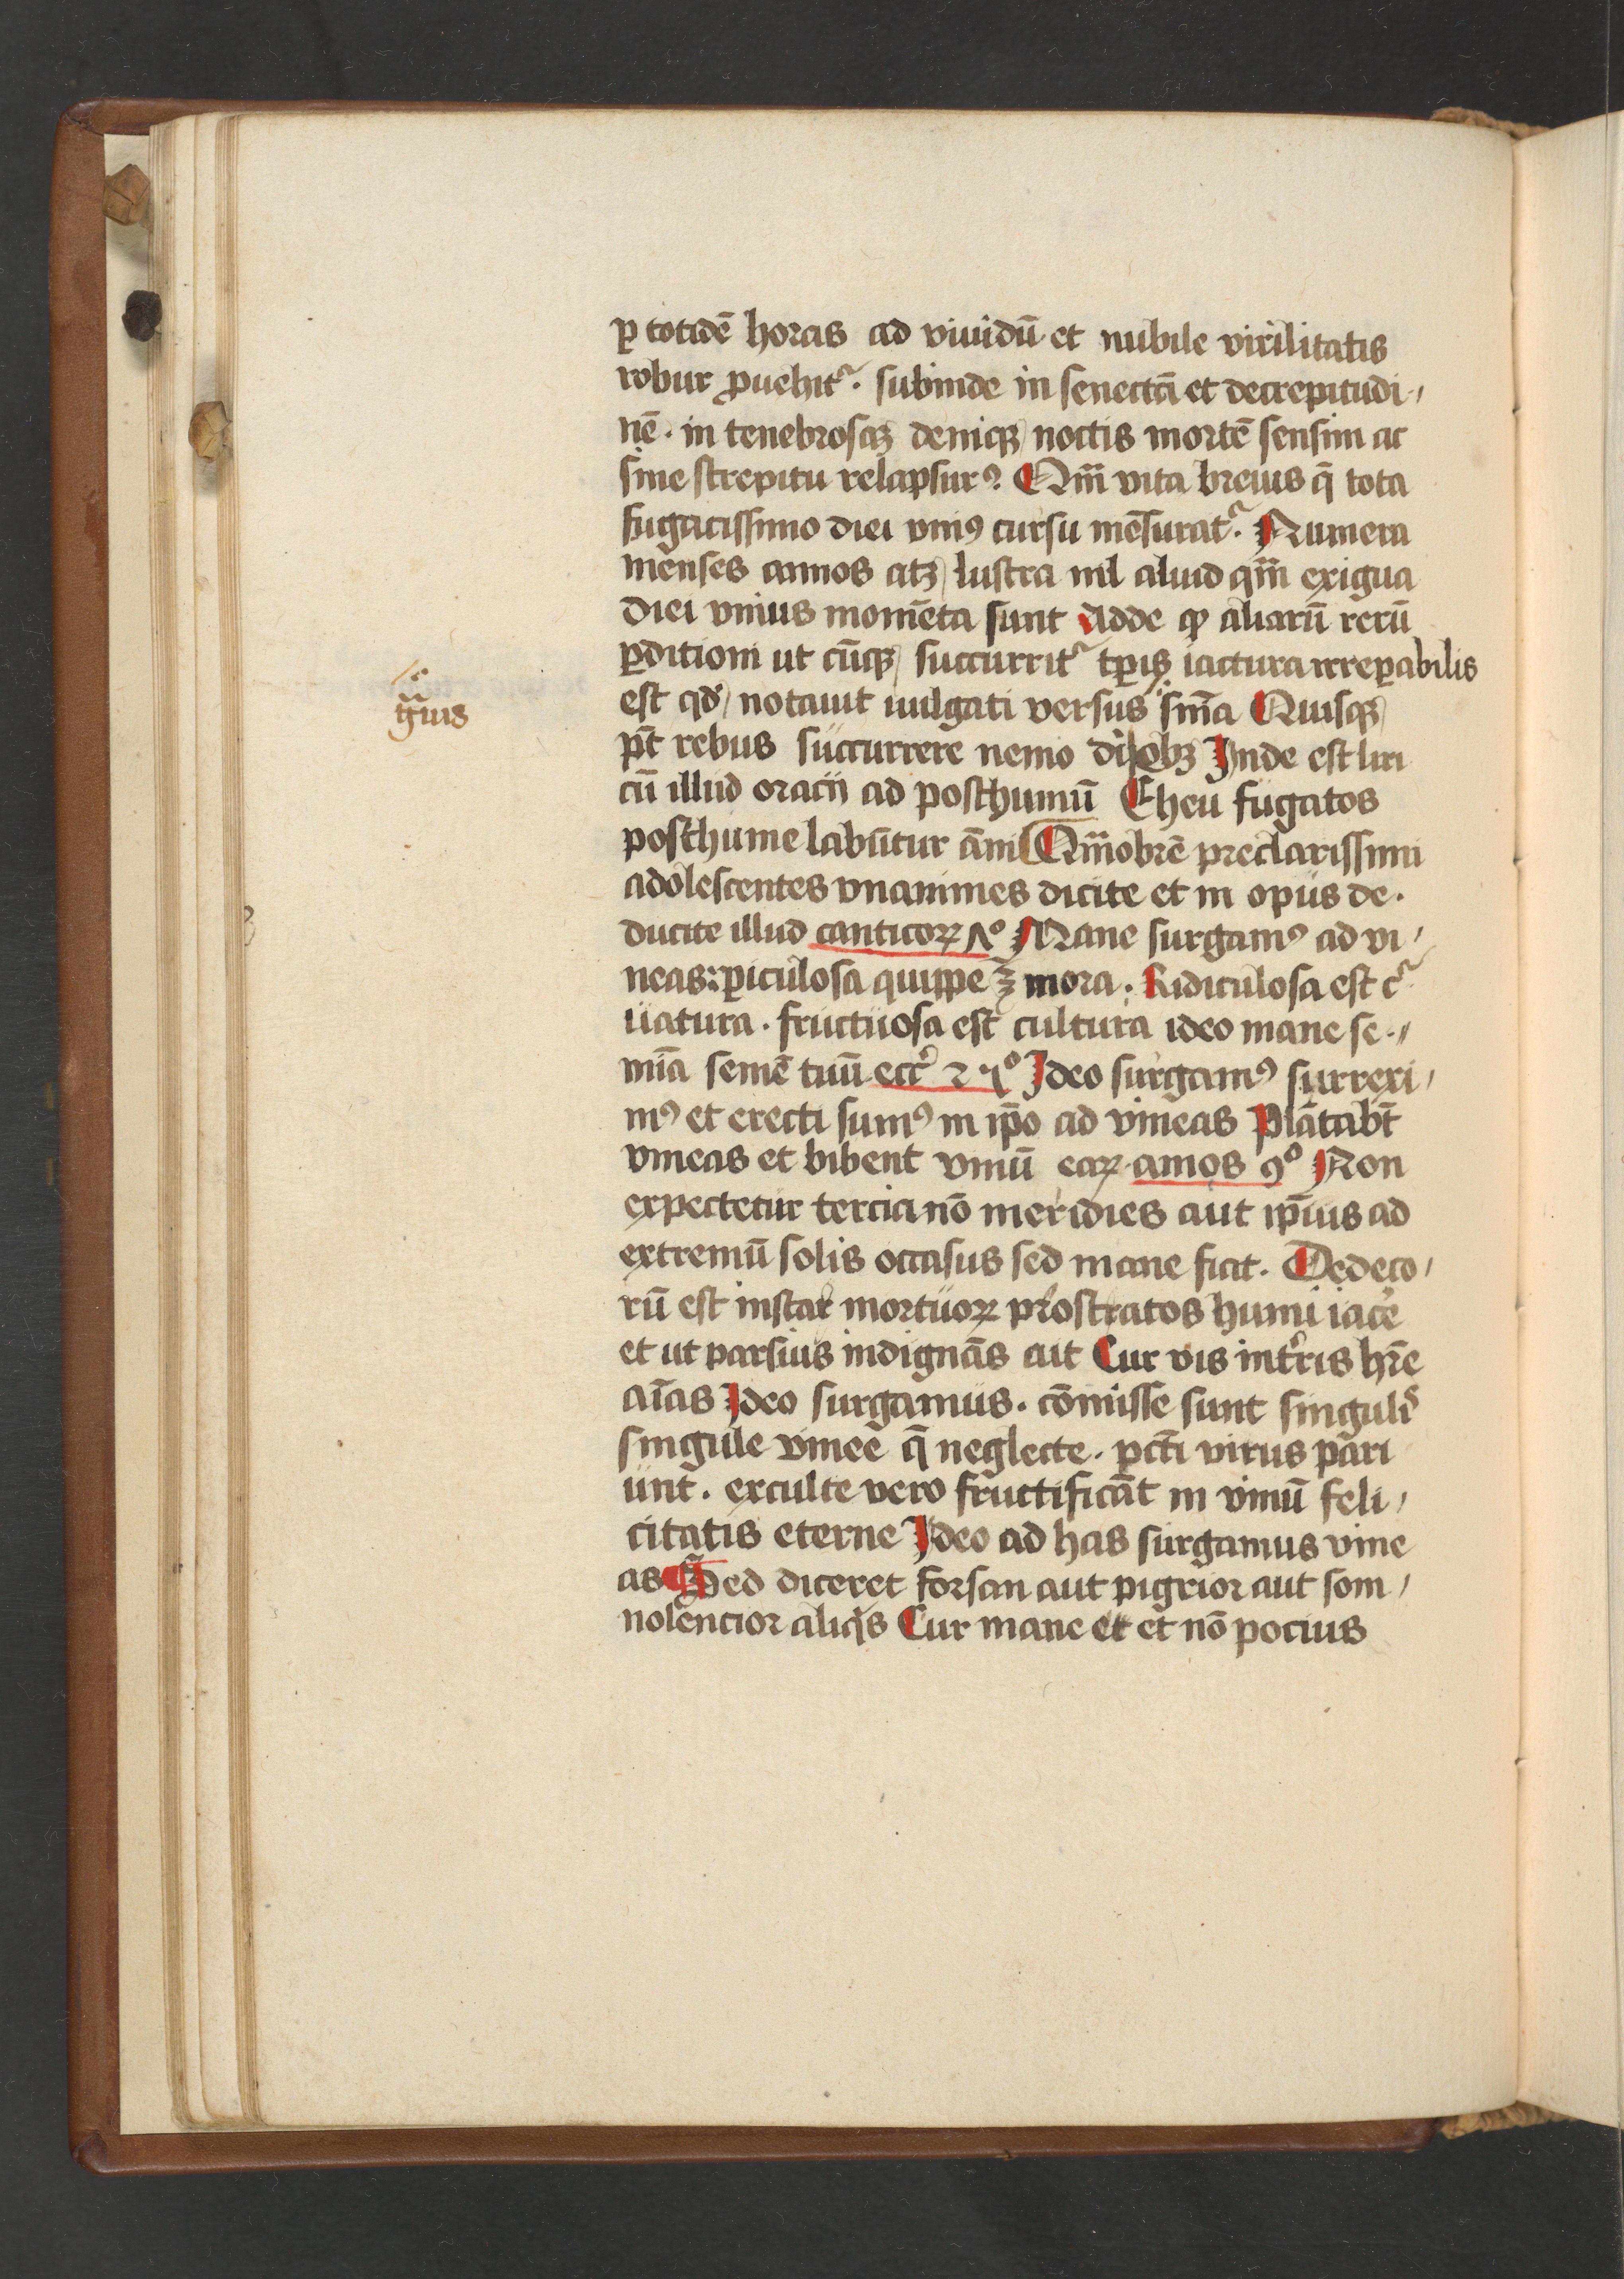 ꝑ totidē horas ad viuidū et nubile virilitatis
robur ꝓuehit᷑. subinde in senectā et decrepitudi,
nē. in tenebrosaꝫ deniqꝫ noctis mortē sensim ac
sine strepitu relapsurꝰ. Qm̄ vita breuis q̄ tota
fugacissimo diei vniꝰ cursu mēsurat᷑. Numera
menses annos atqꝫ lustra nil aliud qm̄ exigua
diei vnius momēta sunt Adde ꝙ aliarū rerū
ꝑditioni ut cūqꝫ succurrit᷑ tꝑis iactura irreꝑabilis
est qđ notauit uulgati versus sm̄a Quisqꝫ
pt̄ rebus succurrere nemo diebꝫ Inde est liri
cū illud oracii ad posthumū Eheu fugatos
posthume labūtur āni Qm̄obrē preclarissimi
adolescentes vnanimes dicite et in opus de.
ducite illud canticoꝝ ꝟº Mane surgamꝰ ad vi,
neas: ꝑiculosa quippe ē mora. Ridiculosa est c᷑
uatura. fructuosa est cultura ideo mane se.,
mīa semē tuū ecc̄ ⁊ ıº Ideo surgamꝰ surrexi,
mꝰ et erecti sumꝰ in ip̄o ad vineas Plātabt̄
vineas et bibent vinū eaꝝ amos 9º Non
expectetur tercia nō meridies aut ip̄ius ad
extremū solis occasus sed mane fiat. Dedeco,
rū est instar mortuoꝝ prostratos humi iacē
et ut parsius indignās ait Cur vis int̄ris hr̄e
aīas Ideo surgamus. cōmisse sunt singul̄
singule vinee q̄ neglecte. pcti virus pari
unt. exculte vero fructificāt in vinū feli,
citatis eterne Ideo ad has surgamus vine
as Sed diceret forsan aut pigrior aut som,
nolencior aliqs Cur mane et et nō pocius